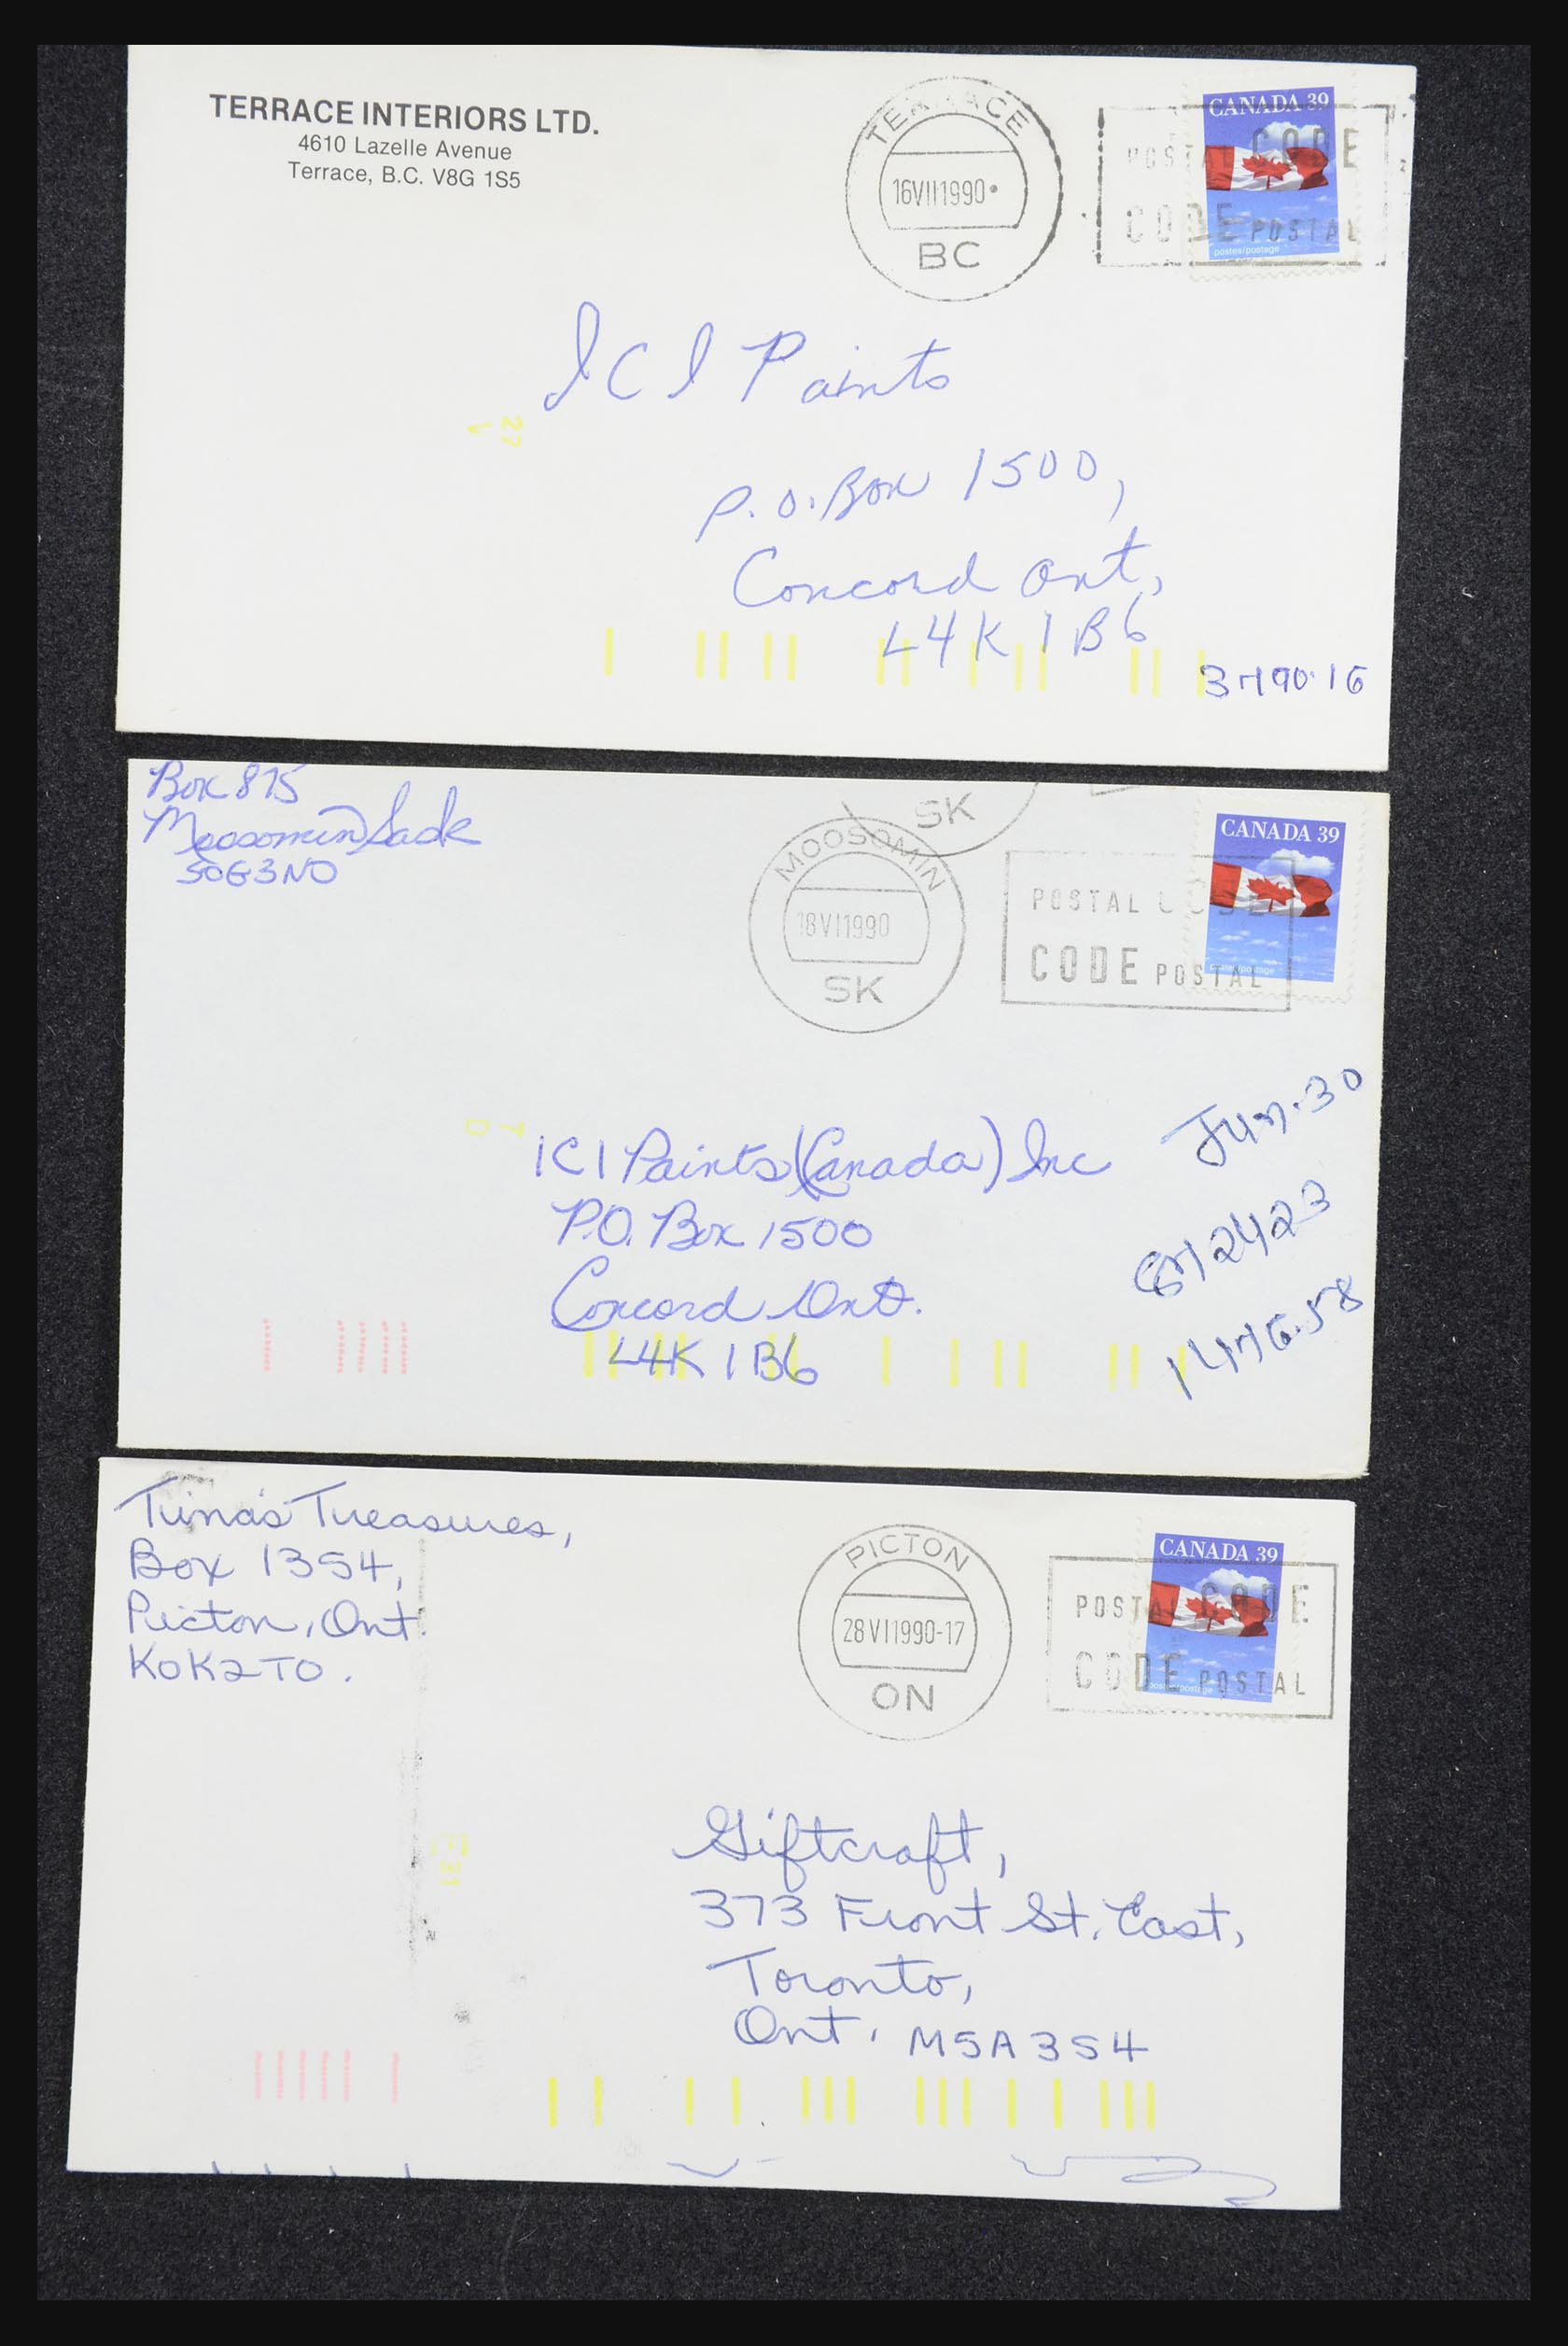 TERRACE INTERIORS LTD.
4610 Lazelle Avenue
Terrace, B.C. V8G 1S5
TERRACE
16VII1990
BC
CANADA 39
POSTAL CODE
CODE POSTAL
postes/postage
ICI Paints
27
V
P.O. Box 1500,
Concord Ont,
L4K 1B6
3790.16
Box 875
Moosomin Sask
S0G3N0
SK
MOOSOMIN
18VI1990
SK
CANADA 39
POSTAL CODE
CODE POSTAL
postes/postage
Jun.30
ICI Paints (Canada) Inc
P.O. Box 1500
Concord Ont.
L4K 1B6
1476.58
Tina's Treasures,
Box 1354,
Picton, Ont.
K0K2T0.
PICTON
28VI1990-17
ON
CANADA 39
POSTAL CODE
CODE POSTAL
postes/postage
Giftcraft,
373 Front St. East,
Toronto,
Ont. M5A3S4